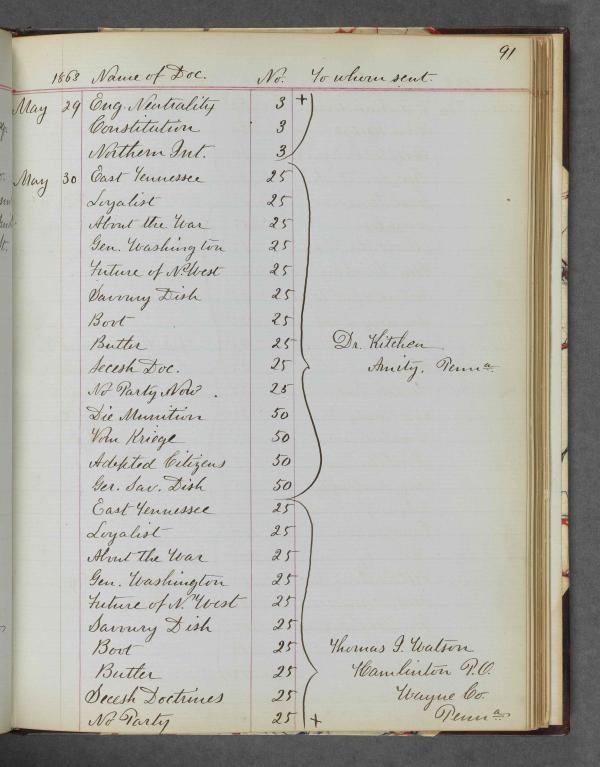 91
1863 Name of Doc. No. To whom sent.
May 29 Eng. Neutrality 3 +
Constitution 3
Northern Int. 3
May 30 East Tennessee 25
Loyalist 25
About the War 25
Gen. Washington 25
Future of N. West 25
Savoury Dish 25
Boot 25
Butler 25 Dr. Kitchen
Secesh Doc. 25 Amity, Penna.
No Party Now. 25
Die Munition 50
Vom Kriege 50
Adopted Citizens 50
Ger. Sav. Dish 50
East Tennessee 25
Loyalist 25
About the War 25
Gen. Washington 25
Future of N. West 25
Savoury Dish 25
Boot 25 Thomas J. Watson
Butler 25 Hamlinton P.O.
Secesh Doctrines 25 Wayne Co.
No Party 25 + Penna.